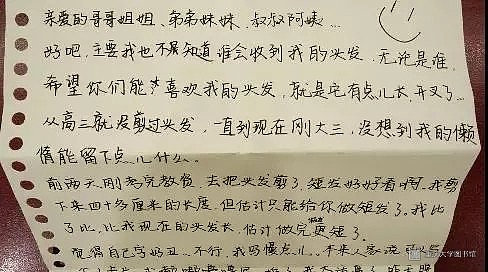 亲爱的哥哥姐姐、弟弟妹妹、叔叔阿姨…
好吧,主要我也不知道谁会收到我的头发,无论是谁,
希望你们能喜欢我的头发,就是它有点儿长,开叉了…
从高三就没剪过头发,一直到现在刚大三,没想到我的懒
惰能留下点儿什么。
前两天刚考完教资,去把头发剪了,短发好好看啊,我剪
下来四十多厘米的长度,但估计只能给你做短发了。我比
了比,比我现在的头发长,估计做完更短了。
觉得自己字好丑…不行,我写慢点儿。本来人家说
大学图书馆